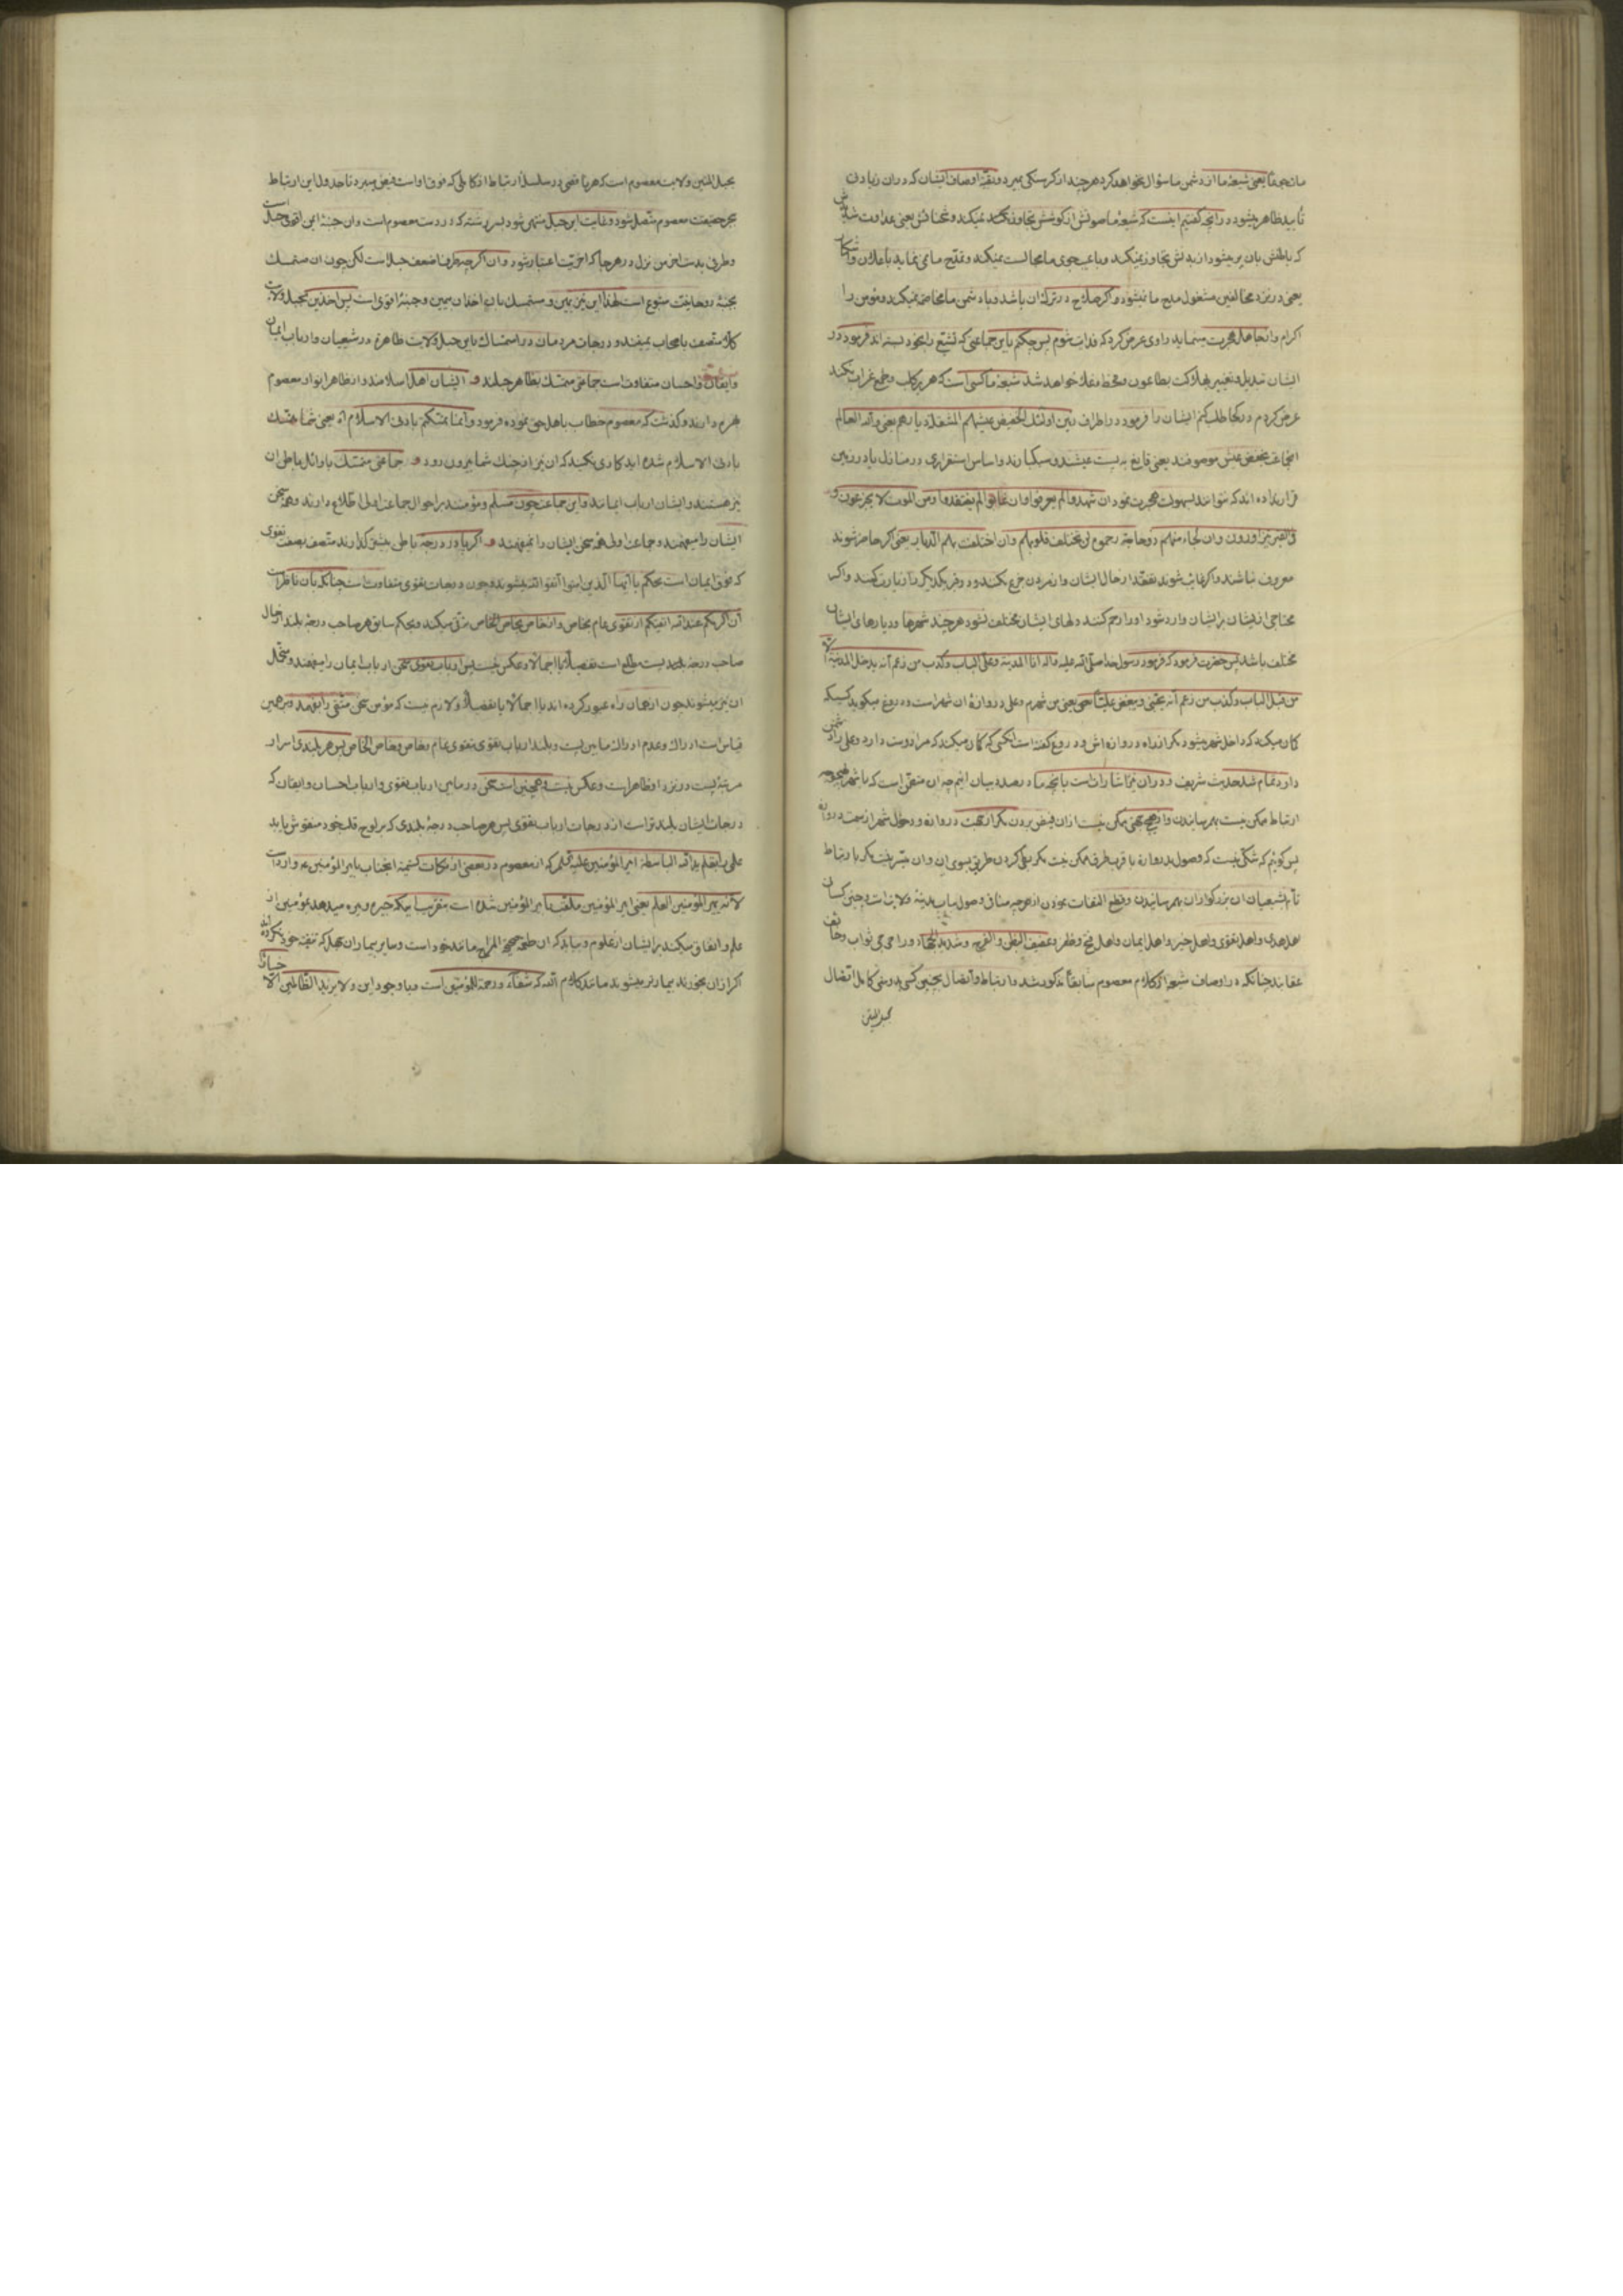 مات جوعا یعنی شیعهٔ ما از دشمن ما سؤال نخواهد کرد هر چند از کرسنکی بمیرد و بقیهٔ اوصاف ایشان که در ان زیادتی
تأیید ظاهر میشود در انچه کفتیم اینست که شیعهٔ ما صوتش از کوشش تجاوز نمیکند و شحنائش یعنی عداوت شدیدش
که باطنش بان پر میشود از بدنش تجاوز نمیکند و با عیب جوی ما مجالست نمیکند و تمدّح ما نمی نماید باعلان واشکار
یعنی در نزد مخالفین مشغول مدح ما نمیشود و اکر صلاح در ترک ان باشد و با دشمن ما مخاصمه نمیکند و مؤمن را
اکرام و از جاهل هجرت مینماید راوی عرض کرد که فدایت شوم پس چکنم باین جماعتی که تشیّع را بخود بسته اند فرمود در
ایشان تبدیل و تغییر بهلاکت بطاعون و قحط خواهد شد شیعهٔ ما کسی است که هریر کلب و طمع غراب نکند
عرض کردم در کجا طلب کنم ایشان را فرمود در اطراف زمین اولئک الخفیض عیشهم المنتقلة دیارهم یعنی والله العالم
انجماعت بخفض عیش موصوفند یعنی قانع به پست عیشند و سبکبارند و اساس استقراری در منازل یا در زمین
قرار نداده اند که نتوانند بسهولت هجرت نمود ان شهدوا لم یعرفوا وان غابوا لم یفتقدوا ومن الموت لا یجزعون و
فی القبور یتزاورون وان لجأ الیهم ذو حاجة رحموه لن یختلف قلوبهم وان اختلفت بهم الدیار یعنی اکر حاضر شوند
معروف نباشند و اکر غائب شوند تفقّد از حال ایشان و از مردن جزع نکنند و در قبر یکدیکر را زیارت کنند و اکر
محتاجی از ایشان بر ایشان وارد شود او را رحم کنند دلهای ایشان مختلف نشود هر چند شهرها و دیارهای ایشان
مختلف باشد پس حضرت فرمود که فرمود رسول خدا صلّی الله علیه واله انا المدینة وعلیّ الباب وکذب من زعم انه یدخل المدینة الّا
من قبل الباب وکذب من زعم انّه یحبّنی ویبغض علیّاً یعنی من شهرم و علی دروازهٔ ان شهر است و دروغ میکوید کسیکه
کمان میکند که داخل شهر میشود مکر از راه دروازه اش و دروغ کفته است انکسی که کمان میکند که مرا دوست دارد و علی را دشمن
دارد تمام شد حدیث شریف و در ان نیز اشاراتست بانچه ما در صدد بیان انیم چه ان متضمن است که با شهر
ارتباط ممکن نیست بهم رسانیدن و ازان فیض بردن مکر از جهت دروازه و دخول شهر از سمت دروازه
پس کوئیم که شکّی نیست که وصول بدروازه یا قرب طرف ممکن نیست مکر بطیّ کردن طریق بسوی ان و ان میسّر نیست مکر بارتباط
تام بشیعیان ان بزرکواران بهم رسانیدن و قطع التفات نمودن از هر چه منافی وصول باب مدینهٔ ولایتست و چنین کسان
اهل هدی و اهل تقوی و اهل خیر و اهل ایمان و اهل فتح و ظفر و عفیف البطن والفرج و شدید الجهاد و راجی ثواب و خائف
عقابند چنانکه در اوصاف شیعه از کلام معصوم سابقاً مذکور شد و ارتباط و اتّصال بچنین کسی بدوستی کامل اتّصال
بحبل المتین
بحبل المتین ولایت معصوم است که هر ناقصی در سلسلهٔ ارتباط از کاملی که فوق اوست فیض میبرد تا جدول این ارتباط
ببحر حقیقت معصوم متّصل شود و غایت این حبل منتهی شود بسر رشته که در دست معصوم است و ان جنبهٔ ایمن اقوی حبل است
و طرفی بدست اخر من نزل در هر جا که اخریّت اعتبار شود و ان اکر چه طرف اضعف حبل است لکن چون ان متمسک
بجنبهٔ روحانیت متبوع است لهذا این نیز یمین و متمسک بان اخذان بیمین و جنبهٔ اقوی است پس اخذین بحبل ولایت
کلّاً متّصف باصحاب یمینند و درجات مردمان در استمساک باین حبل ولایت ظاهره در شیعیان و ارباب ایمان
وایقان واحسان متفاوت است جماعتی متمسّک بظاهر حبلند و ایشان اهل اسلامند و از ظاهر انوار معصوم
بهره دارند و کذشت که معصوم خطاب باهل حق نموده فرمود وانما تمسّکتم بادنی الاسلام اه یعنی شما متمسّک
بادنی الاسلام شده اید کاری نکنید که ان نیز از چنک شما بیرون رود و جماعتی متمسّک باوائل باطن ان
نیز هستند و ایشان ارباب ایمانند و این جماعت چون مسلم و مؤمنند بر احوال جماعت اولی اطّلاع دارند و سخن
ایشان را میفهمند و جماعت اولی همه سخن ایشان را نمیفهمند و اکر پا در درجهٔ باطن بیشتر کذارند متّصف بصفت تقوی
که فوق ایمان است بحکم یا ایّها الّذین امنوا اتّقوا الله میشوند و چون درجات تقوی متفاوتست چنانکه بان ناظر است
انّ اکرمکم عند الله اتقیکم از تقوی عام بخاص و از خاص بخاص الخاص ترقی میکند و بحکم سابق هر صاحب درجهٔ بلند از حال
صاحب درجهٔ پست مطلع است تفصیلاً یا اجمالاً و عکس نیست پس ارباب تقوی سخن ارباب ایمان را میفهمند و متحمّل
ان نیز میشوند چون از همان راه عبور کرده اند یا اجمالاً یا تفصیلاً و لازم نیست که مؤمن سخن متّقی را بفهمد و بر همین
قیاس است ادراک و عدم ادراک مابین پست و بلند ارباب تقوی بتقوی عام و خاص و خاص الخاص پس هر بلندی اسرار
مرتبهٔ پست در نزد او ظاهر است و عکس نیست و همچنین است سخن در مابین ارباب تقوی و ارباب احسان و ایقان که
درجات ایشان بلند تر است از درجات ارباب تقوی پس هر صاحب درجهٔ بلندی که بر لوح قلب خود منقوش یابد
علمی را بقلم ید الله الباسطة امیر المؤمنین علیه السلام که از معصوم در بعضی از نکات تسمیهٔ انجناب بامیر المؤمنین ع وارد است
لانّه یمیر المؤمنین العلم یعنی امیر المؤمنین ملقّب بامیر المؤمنین شده است بتقریب اینکه خیره و میره میدهد مؤمنین را از
علم و انفاق میکند بر ایشان از علوم و بیابد که ان طعمهٔ صحیح المزاج مانند خود است و سایر بیماران جهل که تنقیه خود نکرده اند
اکر ازان بخورند بیمارتر میشوند مانند کلام الله که شفاء ورحمة للمؤمنین است و با وجود این ولا یزید الظّالمین الّا خساراً